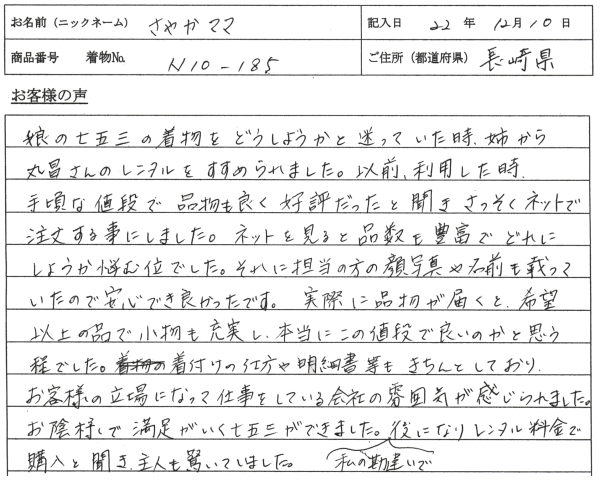 お名前（ニックネーム） さやかママ 記入日 22 年 12月 10日
商品番号 着物No. N10-185 ご住所（都道府県） 長崎県
お客様の声
娘の七五三の着物をどうしようかと迷っていた時、姉から
丸昌さんのレンタルをすすめられました。以前、利用した時、
手頃な値段で品物も良く好評だったと聞きさっそくネットで
注文する事にしました。ネットを見ると品数も豊富でどれに
しようか悩む位でした。それに担当の方の顔写真や名前も載って
いたので安心でき良かったです。 実際に品物が届くと、希望
以上の品で小物も充実し、本当にこの値段で良いのかと思う
程でした。着物の着付けの仕方や明細書等もきちんとしており、
お客様の立場になって仕事をしている会社の雰囲気が感じられました。
お陰様で満足がいく七五三ができました。後になりレンタル料金で
購入と聞き、主人も驚いてしました。 私の勘違いで